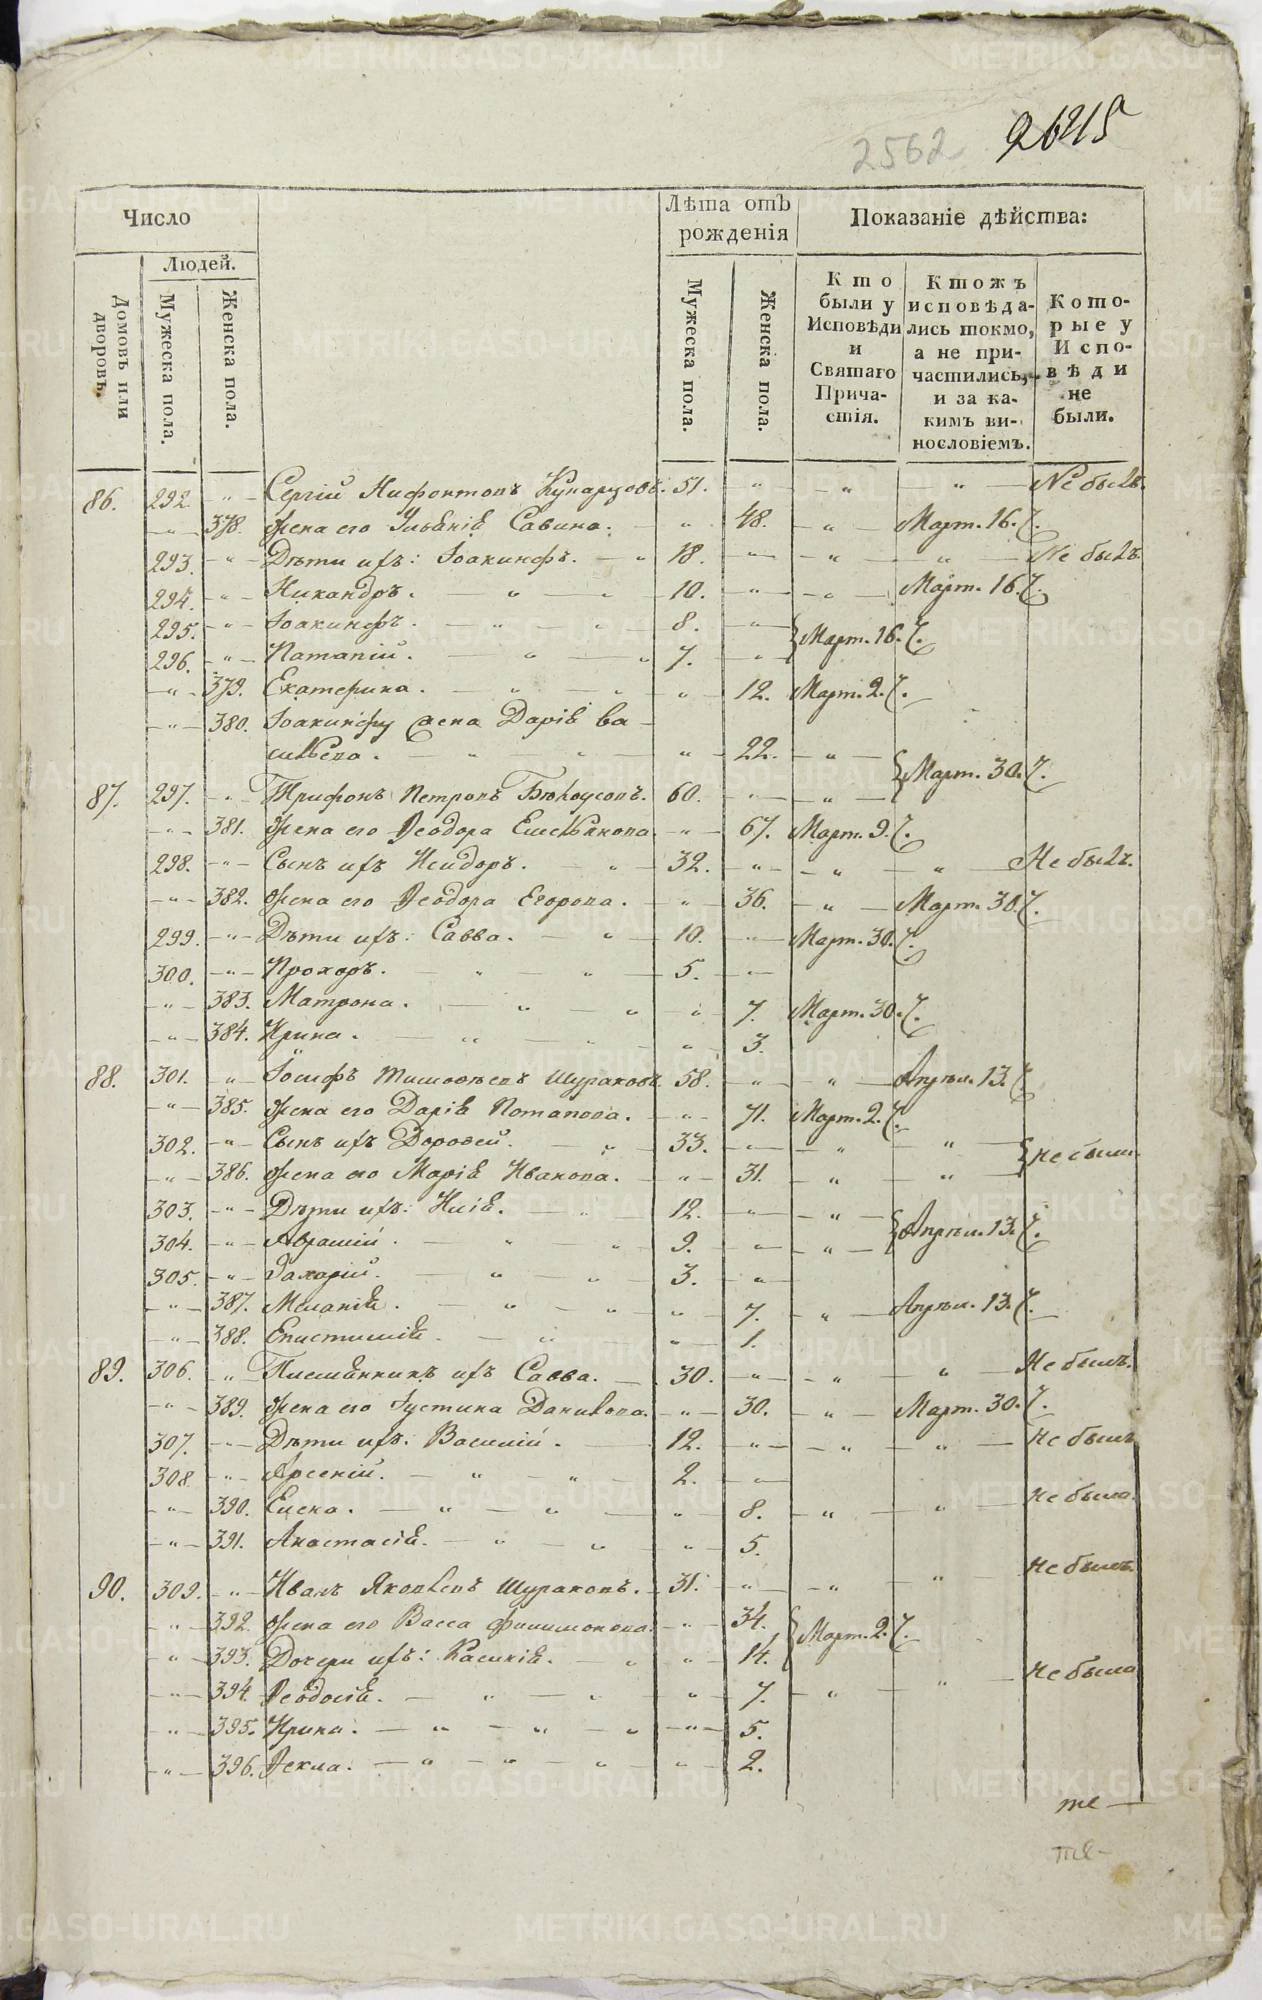 2562 26215
Число
Лѣта отъ рожденія
Показаніе дѣйства:
Людей.
Домовъ или дворовъ.
Мужеска пола.
Женска пола.
Мужеска пола.
Женска пола.
Кто были у Исповѣди и Святаго Прича-стія.
Ктожъ исповѣда-лись токмо, а не при-частились, и за ка-кимъ ви-нословіемъ.
Кото-рые у Испо-вѣди не были.
86. 292. „ Сергій Нифонтовъ 51. „ „ „ Не былъ.
„ 378. жена его Савина. „ 48. „ Март. 16.
293. „ Дѣти ихъ: Іоакинфъ. „ 18. „ „ „ Не былъ.
294. „ Никандръ. „ „ 10. „ „ Март. 16.
295. „ Іоакинфъ. „ „ 8. „
296. „ Патапій. „ „ 7. „ Март. 16.
„ 379. Екатерина. „ „ „ 12. Март. 2.
„ 380. Іоакинфу жена Дарія Ва-
сильева. „ „ „ 22. „
Март. 30.
87. 297. „ Трифонъ Петровъ Бѣлоусовъ. 60. „ „
„ 381. жена его Ѳеодора Емельянова „ 67. Март. 9.
298. „ Сынъ ихъ Исидоръ. „ 32. „ „ „ Не былъ.
„ 382. жена его Ѳеодора Егорова. „ 36. „ Март. 30.
299. „ Дѣти ихъ: Савва. „ 10. „ Март. 30.
300. „ Прохоръ. „ „ 5. „
„ 383. Матрона. „ „ „ 7. Март. 30.
„ 384. Ирина. „ „ „ 3.
88. 301. „ Іосифъ Тимофѣевъ Шураковъ. 58. „ „ Апрѣл. 13.
„ 385. жена его Дарія Потапова. „ 71. Март. 2.
302. „ Сынъ ихъ Дороѳей. „ 33. „ „ „
не были.
„ 386. жена его Марія Иванова. „ 31. „ „
303. „ Дѣти ихъ: Илія. „ 12. „ „
Апрѣл. 13.
304. „ Аврамій. „ „ 9. „ „
305. „ Захарій. „ „ 3. „
„ 387. Меланія. „ „ „ 7. „ Апрѣл. 13.
„ 388. Епистимія. „ „ 1.
89. 306. „ Племянникъ ихъ Савва. 30. „ „ „ Не былъ.
„ 389. жена его Іустина Данилова. „ 30. „ Март. 30.
307. „ Дѣти ихъ: Василій. 12. „ „ „ Не былъ
308. „ Арсеній. „ „ 2. „
„ 390. Елена. „ „ „ 8. „ „ Не была.
„ 391. Анастасія. „ „ „ 5.
90. 309. „ Иванъ Яковлевъ Шураковъ. 31. „ „ „ Не былъ.
„ 392. жена его Васса Филимонова. „ 34.
Март. 2.
„ 393. Дочери ихъ: „ „ 14.
„ 394. Ѳеодосія. „ „ „ 7. „ „ Не была
„ 395. Ирина. „ „ „ „ 5.
„ 396. Ѳекла. „ „ „ „ 2.
те
те
METRIKI.GASO-URAL.RU